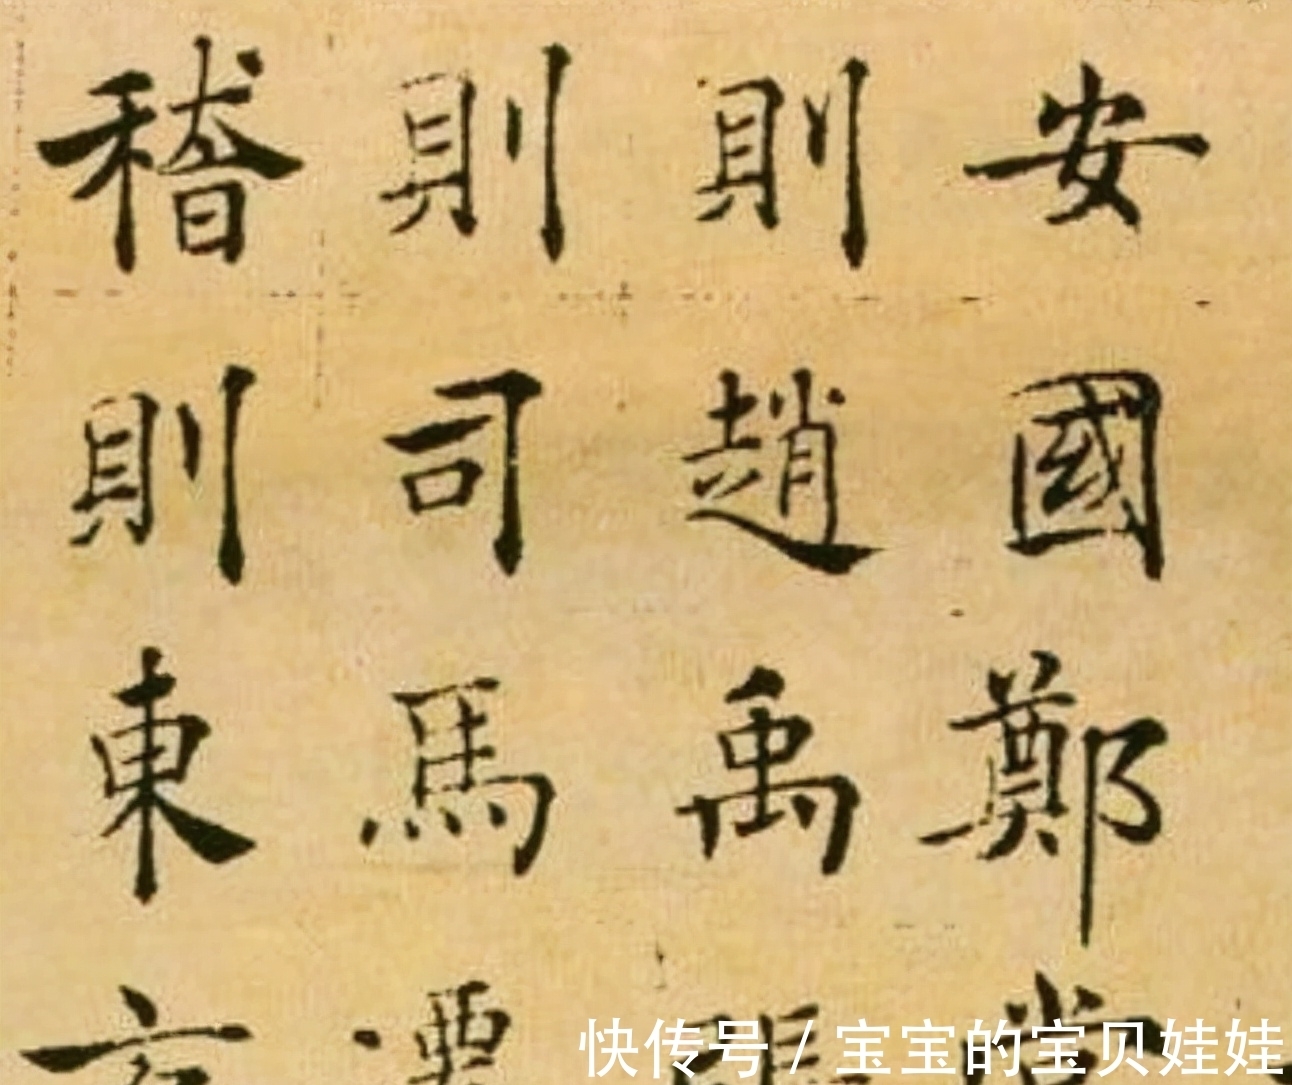 安國鄭
則趙禹
則司馬
稽則東
快传号 / 宝宝的宝贝娃娃